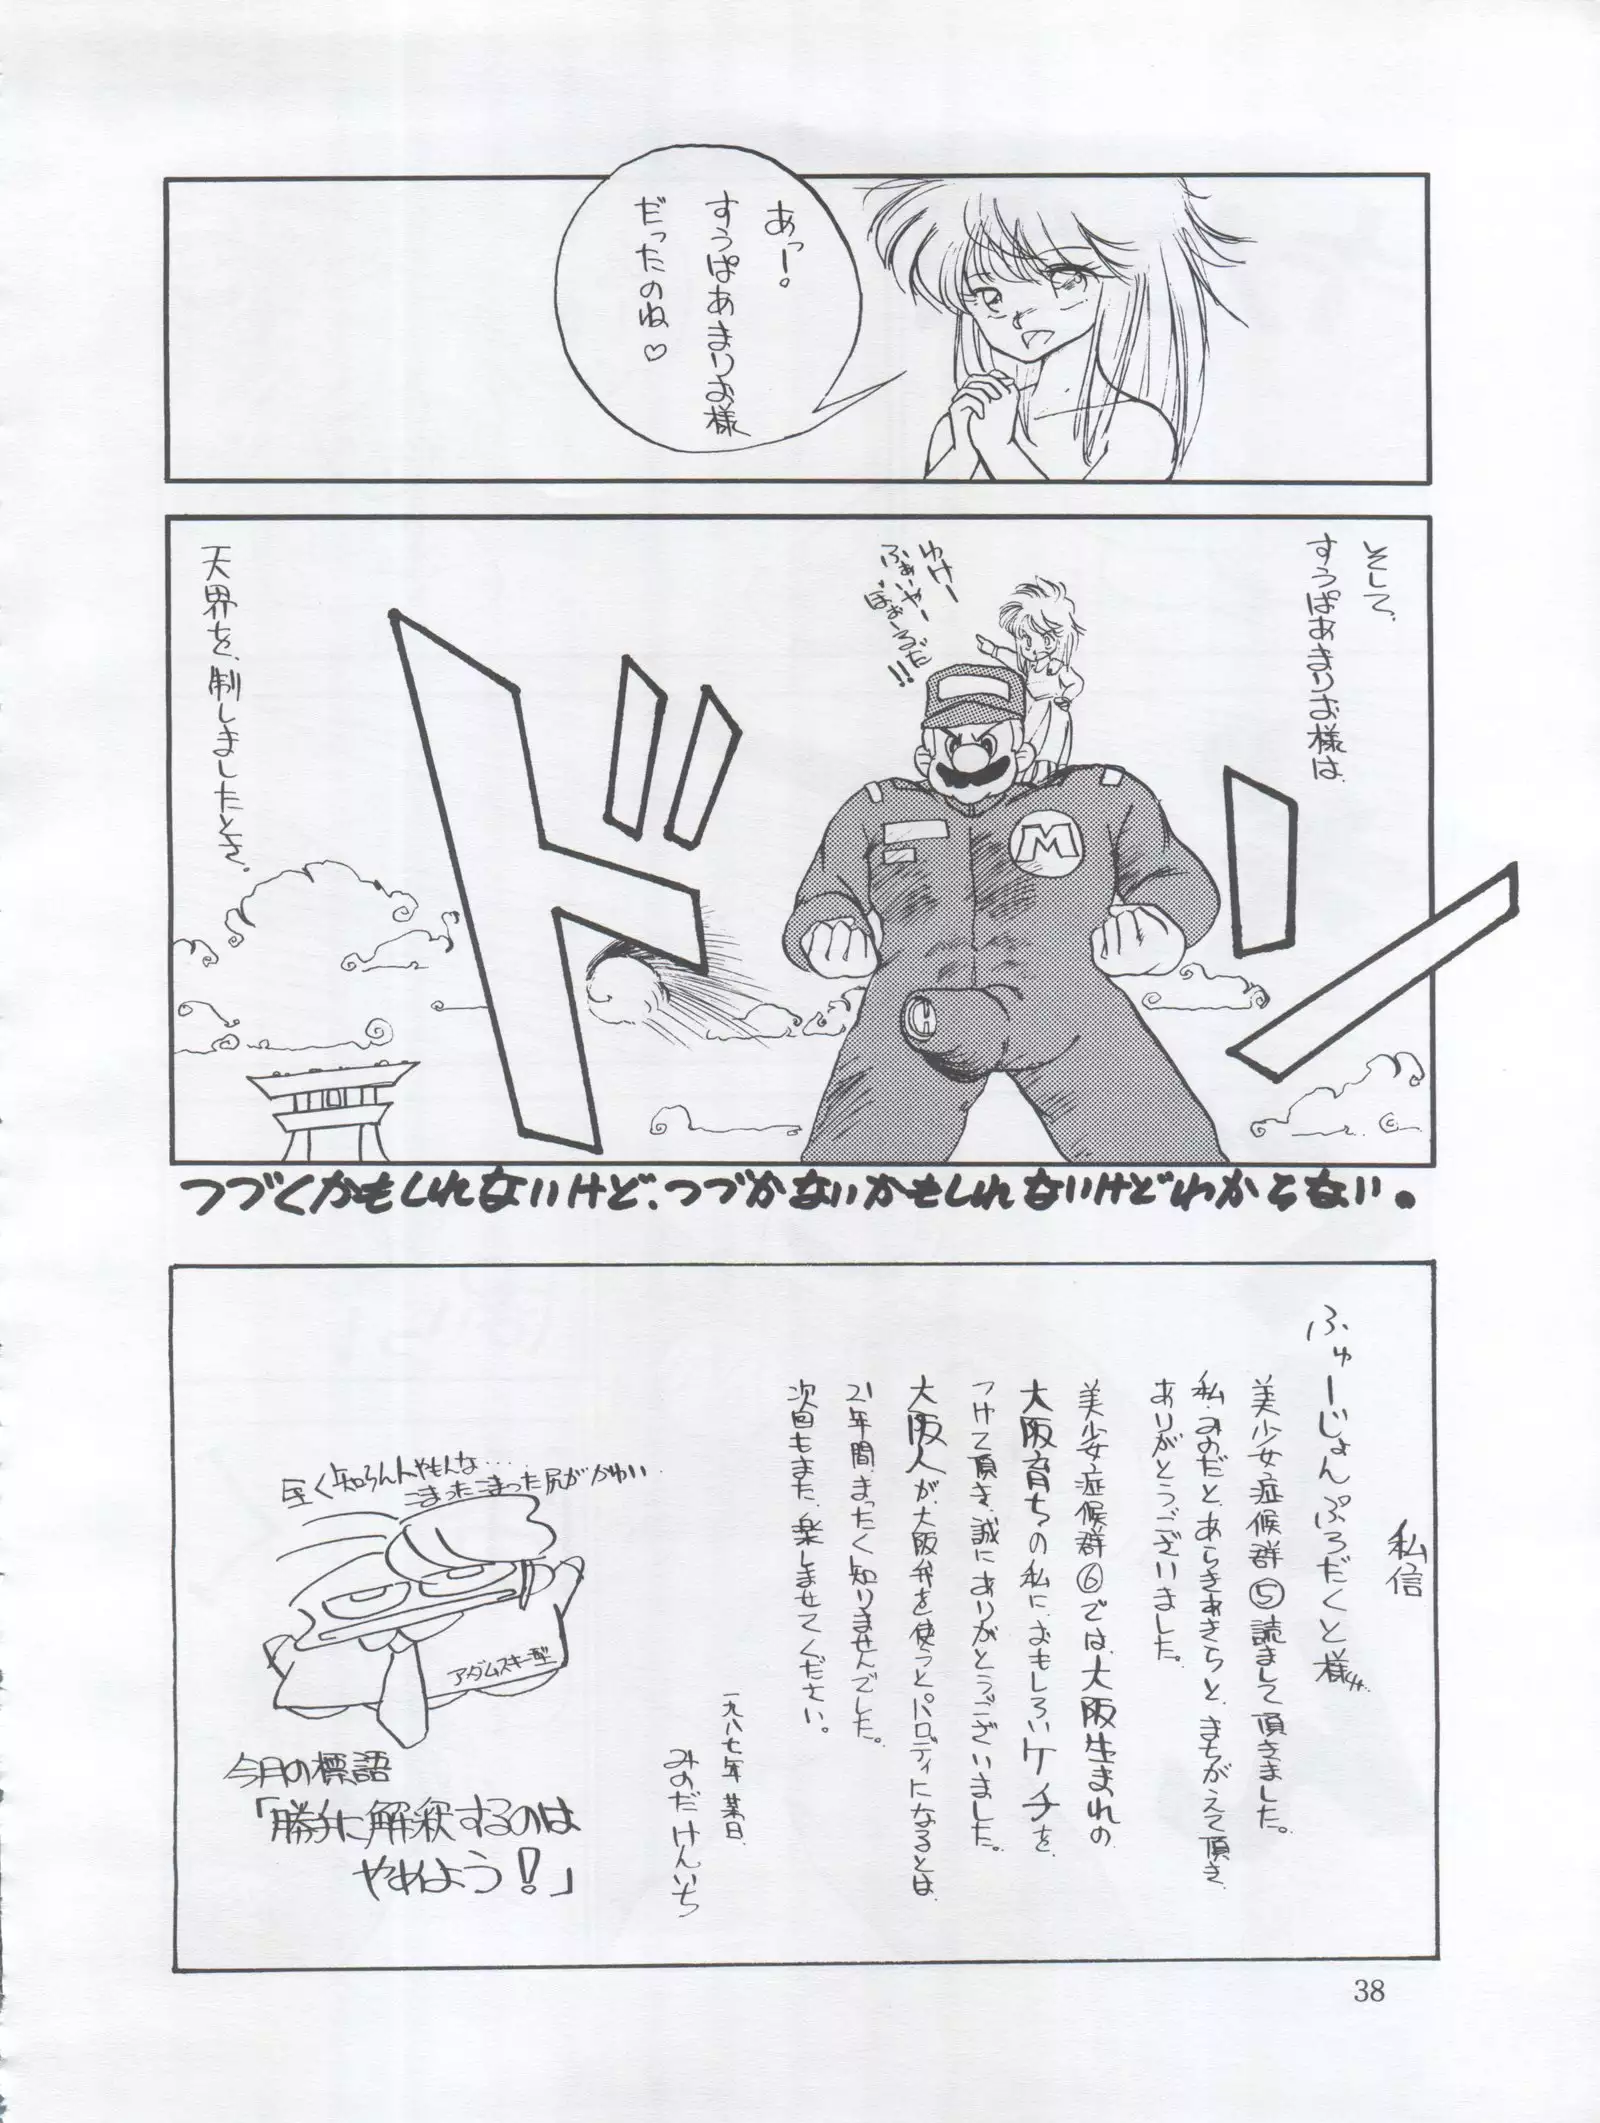 あっ!
すうぱあまりお様
だったのね♡
そして、
すうぱあまりお様は
ゆけー
ふぁいやー
ぼぉーるだ!!
M
ドーン
天界を、制しましたとさ。
つづくかもしれないけど、つづかないかもしれないけどわからない。
私信
ふゅーじょんぷろだくと様
美少女症候群⑤読まして頂きました。
私、みのだと、あらきあきらと、まちがえて頂き、
ありがとうございました。
美少女症候群⑥では、大阪生まれの
大阪育ちの私に、おもしろいケチを
つけて頂き、誠にありがとうございました。
大阪人が、大阪弁を使うとパロディになるとは、
21年間、まったく知りませんでした。
次回もまた、楽しませてください。
一九八七年 某日
みのだけんいち
全く知らんトやもんな....
こまったこまった尻がかゆい
アダムスキー型
今月の標語
「勝手に解釈するのは
やめよう!」
38